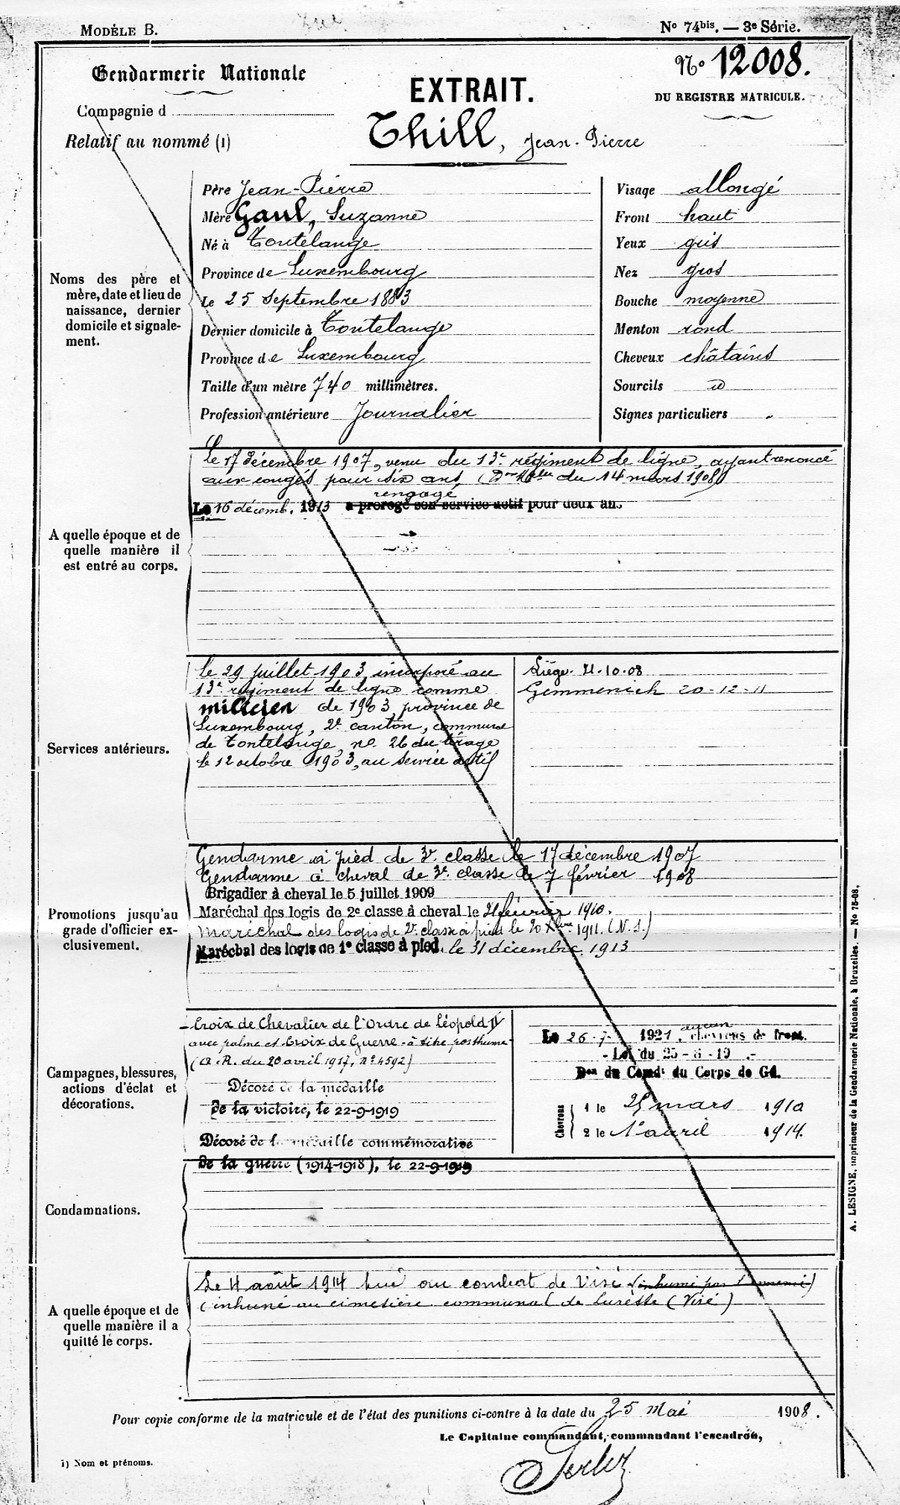 MODÈLE B.
Nº 74bis. — 3e Série.
Gendarmerie Nationale
Nº 12008.
EXTRAIT.
DU REGISTRE MATRICULE.
Compagnie d
Relatif au nommé (1) Thill, Jean-Pierre
Noms des père et mère, date et lieu de naissance, dernier domicile et signalement.
Père Jean-Pierre
Mère Gaul, Suzanne
Né à Tontelange
Province de Luxembourg
Le 25 Septembre 1883
Dernier domicile à Tontelange
Province de Luxembourg
Taille d'un mètre 740 millimètres.
Profession antérieure Journalier
Visage allongé
Front haut
Yeux gris
Nez gros
Bouche moyenne
Menton rond
Cheveux châtains
Sourcils id
Signes particuliers
A quelle époque et de quelle manière il est entré au corps.
Le 17 décembre 1907, venu du 13e régiment de ligne, ayant renoncé
aux congés pour six ans, du 14 mars 1908)
rengagé
Le 16 décemb. 1913 a prorogé son service actif pour deux ans
Services antérieurs.
Le 29 juillet 1903, incorporé au
13e régiment de ligne comme
milicien de 1903, province de
Luxembourg, 2e canton, commune
de Tontelange, no 26 du tirage
le 12 octobre 1903, au service actif
Liége 21-10-08
Gemmenich 20-12-11
Promotions jusqu'au grade d'officier exclusivement.
Gendarme à pied de 3e classe le 17 décembre 1907
Gendarme à cheval de 3e classe le 7 février 1908
Brigadier à cheval le 5 juillet 1909
Maréchal des logis de 2e classe à cheval le 21 février 1910.
Maréchal des logis de 2e classe à pied le 20 Xbre 1911. (N.S.)
Maréchal des logis de 1e classe à pied, le 31 décembre 1913
Campagnes, blessures, actions d'éclat et décorations.
Croix de Chevalier de l'Ordre de Léopold II
avec palme et Croix de Guerre - à titre posthume
(A.R. du 20 avril 1917, nº 4592)
Décoré de la médaille
de la victoire, le 22-9-1919
Décoré de la médaille commémorative
de la guerre (1914-1918), le 22-9-1919
Le 26-7- 1921, aucun chevrons de front.
- Loi du 25-8-19 -
Don du Comdt du Corps de Gd.
Chevrons
1 le 25 mars 1910
2 le 1 avril 1914.
Condamnations.
A quelle époque et de quelle manière il a quitté le corps.
Le 4 août 1914 tué au combat de Visé (inhumé par l'ennemi)
(inhumé au cimetière communal de Lixhe (Visé)
Pour copie conforme de la matricule et de l'état des punitions ci-contre à la date du 25 Mai 1908.
Le Capitaine commandant, commandant l'escadron,
1) Nom et prénoms.
A. LESIGNE, imprimeur de la Gendarmerie Nationale, à Bruxelles. — No 75-08.